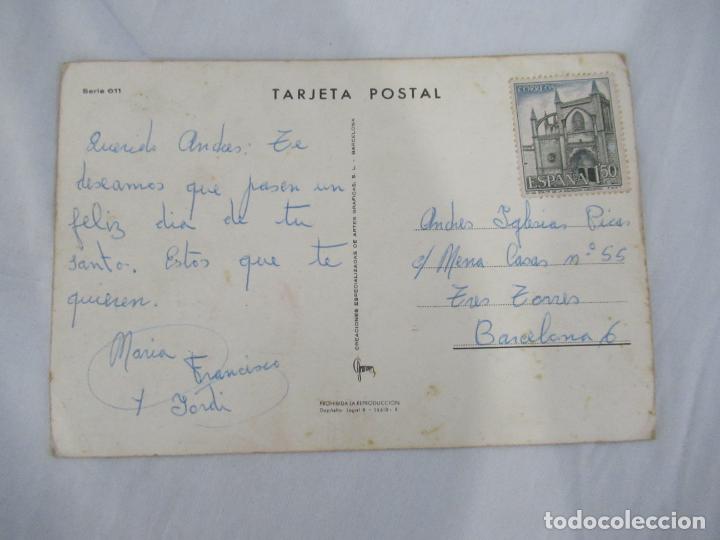 Serie 611
TARJETA POSTAL
CORREOS
ESPAÑA 1'50
Querido Andres: Te
deseamos que pasen un
feliz dia de tu
santo. Estos que te
quieren.
Maria
Francisco
y Jordi
CREACIONES ESPECIALIZADAS DE ARTES GRAFICAS, S. L. - BARCELONA
PROHIBIDA LA REPRODUCCION
Depósito Legal B -
Andres Iglesias Picas
c/ Mena Casas nº 55
Tres Torres
Barcelona 6
todocoleccion